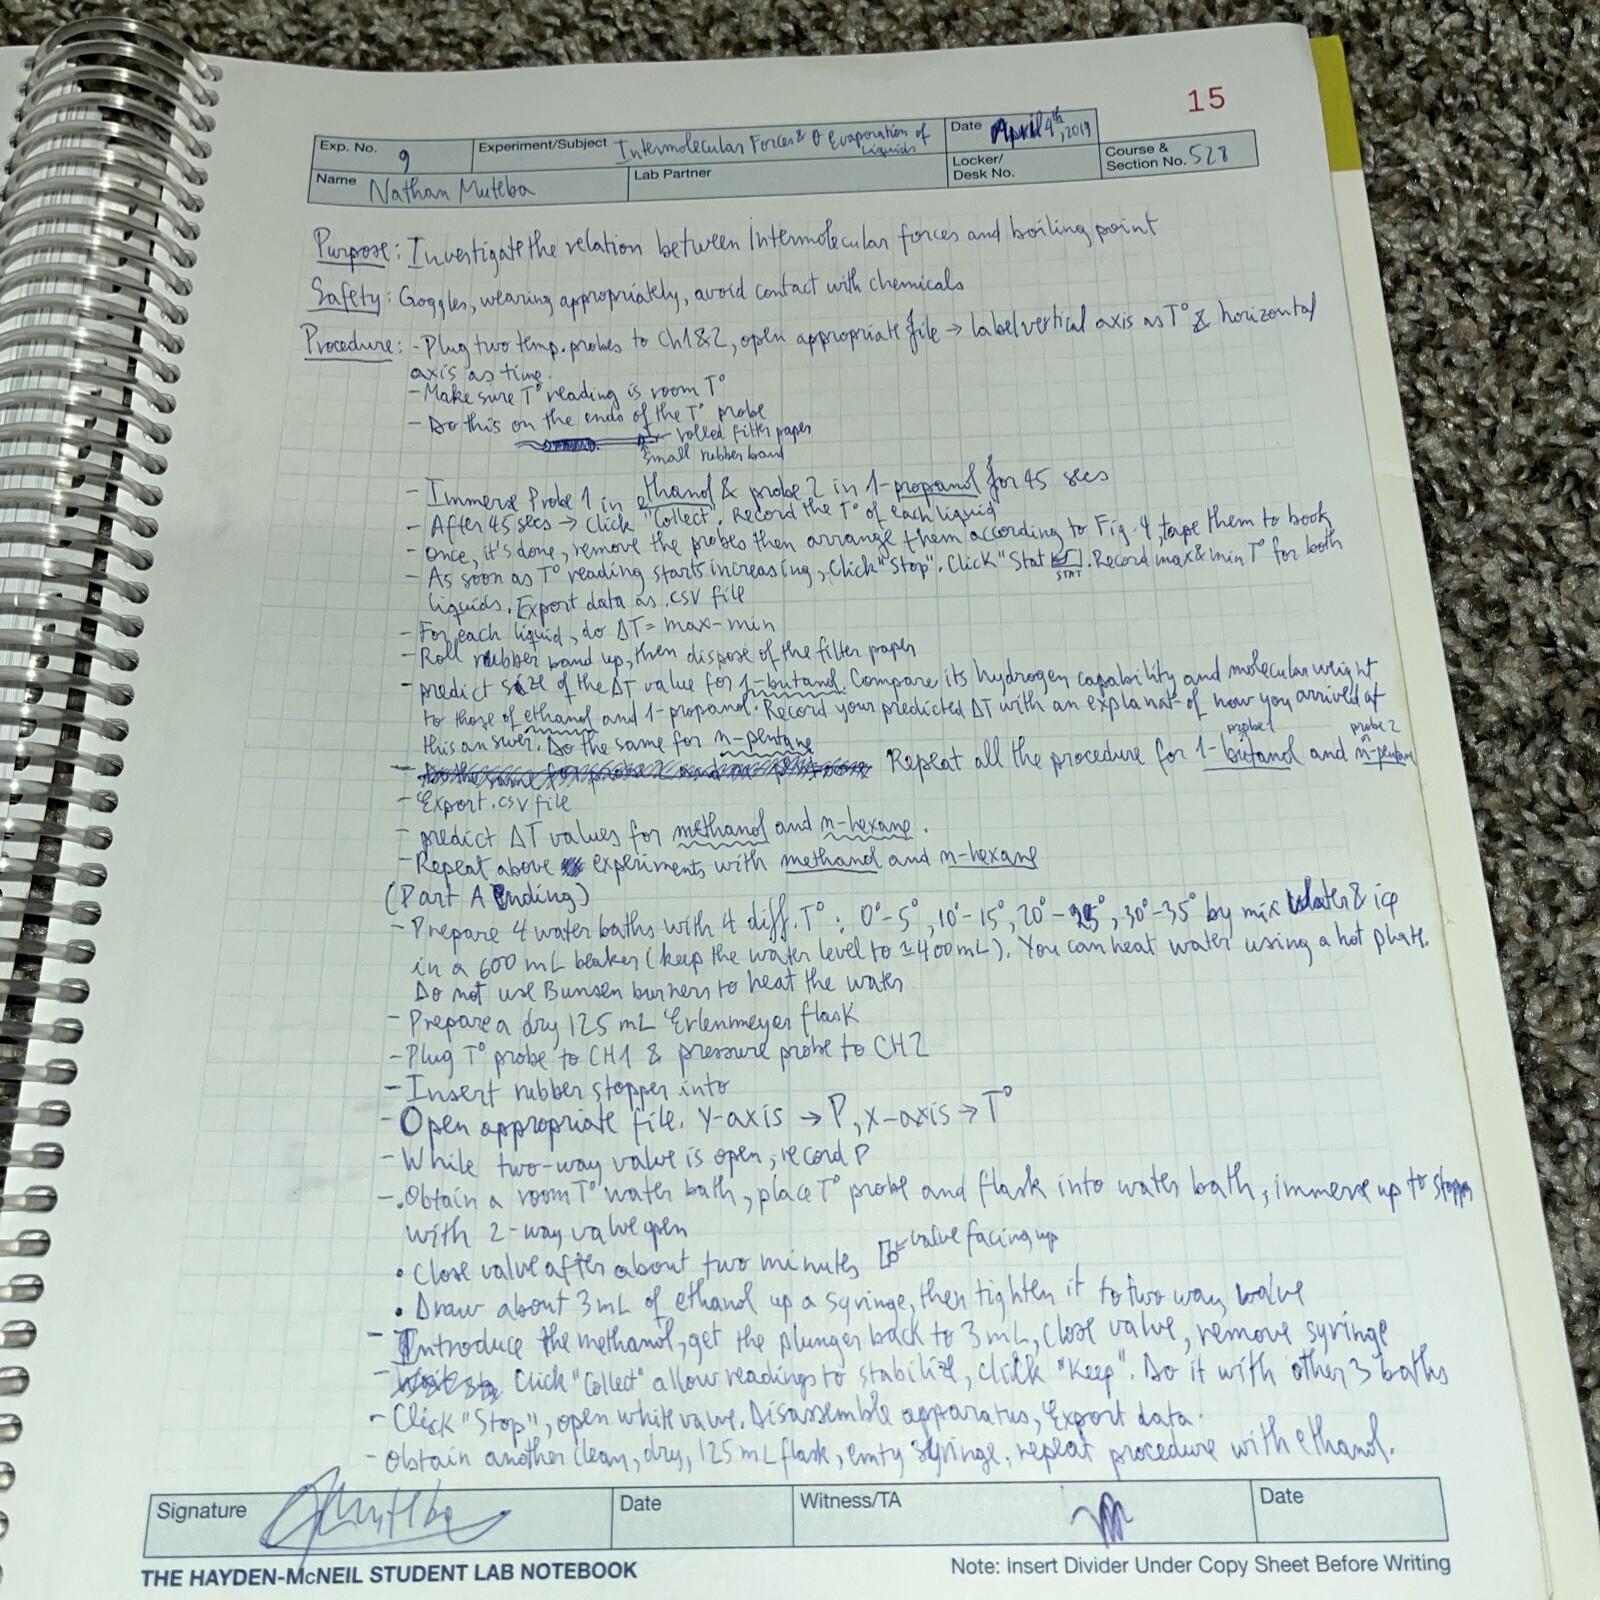 15
Exp. No. 9 Experiment/Subject Intermolecular Forces & Evaporation of Liquids Date April 4th, 2019
Name Nathan Muteba Lab Partner Locker/Desk No. Course & Section No. 528
Purpose: Investigate the relation between Intermolecular forces and boiling point
Safety: Goggles, wearing appropriately, avoid contact with chemicals
Procedure: - Plug two temp. probes to Ch1&2, open appropriate file → label vertical axis as T° & horizontal
axis as time.
- Make sure T° reading is room T°
- Do this on the ends of the T° probe
rolled filter paper
small rubber band
- Immerse Probe 1 in ethanol & probe 2 in 1-propanol for 45 secs
- After 45 secs → Click "Collect". Record the T° of each liquid
- Once, it's done, remove the probes then arrange them according to Fig. 4, tape them to book
- As soon as T° reading starts increasing, Click "Stop". Click "Stat STAT. Record max & min T° for both
liquids. Export data as .csv file
- For each liquid, do ΔT = max-min
- Roll rubber band up, then dispose of the filter paper
- predict size of the ΔT value for 1-butanol. Compare its hydrogen capability and molecular weight
to those of ethanol and 1-propanol. Record your predicted ΔT with an explanat- of how you arrived at
this answer. Do the same for n-pentane
probe 1 probe 2
- Repeat all the procedure for 1-butanol and n-pentane
- Export .csv file
- predict ΔT values for methanol and n-hexane.
- Repeat above experiments with methanol and n-hexane
(Part A Ending)
- Prepare 4 water baths with 4 diff. T° : 0°-5°, 10°-15°, 20°-25°, 30°-35° by mix water & ice
in a 600 mL beaker (keep the water level to ≃400mL). You can heat water using a hot plate.
Do not use Bunsen burners to heat the water
- Prepare a dry 125 mL Erlenmeyer flask
- Plug T° probe to CH1 & pressure probe to CH2
- Insert rubber stopper into
- Open appropriate file. Y-axis → P, x-axis → T°
- While two-way valve is open, record P
- . Obtain a room T° water bath, place T° probe and flask into water bath, immerse up to stopper
with 2-way valve open
• Close valve after about two minutes valve facing up
• Draw about 3 mL of ethanol up a syringe, then tighten it to two way valve
- Introduce the methanol, get the plunger back to 3 mL, close valve, remove syringe
- Click "Collect" allow readings to stabilize, click "Keep". Do it with other 3 baths
- Click "Stop", open white valve. Disassemble apparatus, Export data.
- Obtain another clean, dry, 125 mL flask, emty syringe, repeat procedure with ethanol.
Signature Muteba Date Witness/TA Date
THE HAYDEN-McNEIL STUDENT LAB NOTEBOOK Note: Insert Divider Under Copy Sheet Before Writing